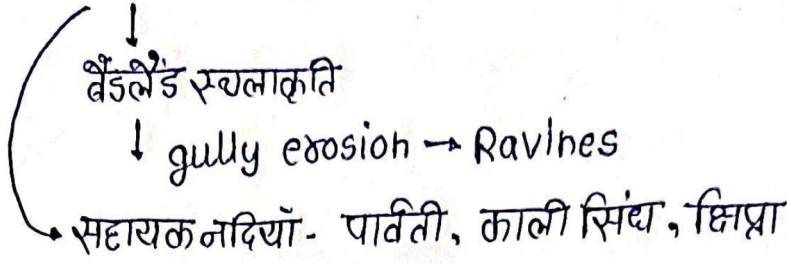 ↓
बैंडलैंड स्थलाकृति
↓ gully erosion → Ravines
→ सहायक नदियाँ - पार्वती, काली सिंध, क्षिप्रा